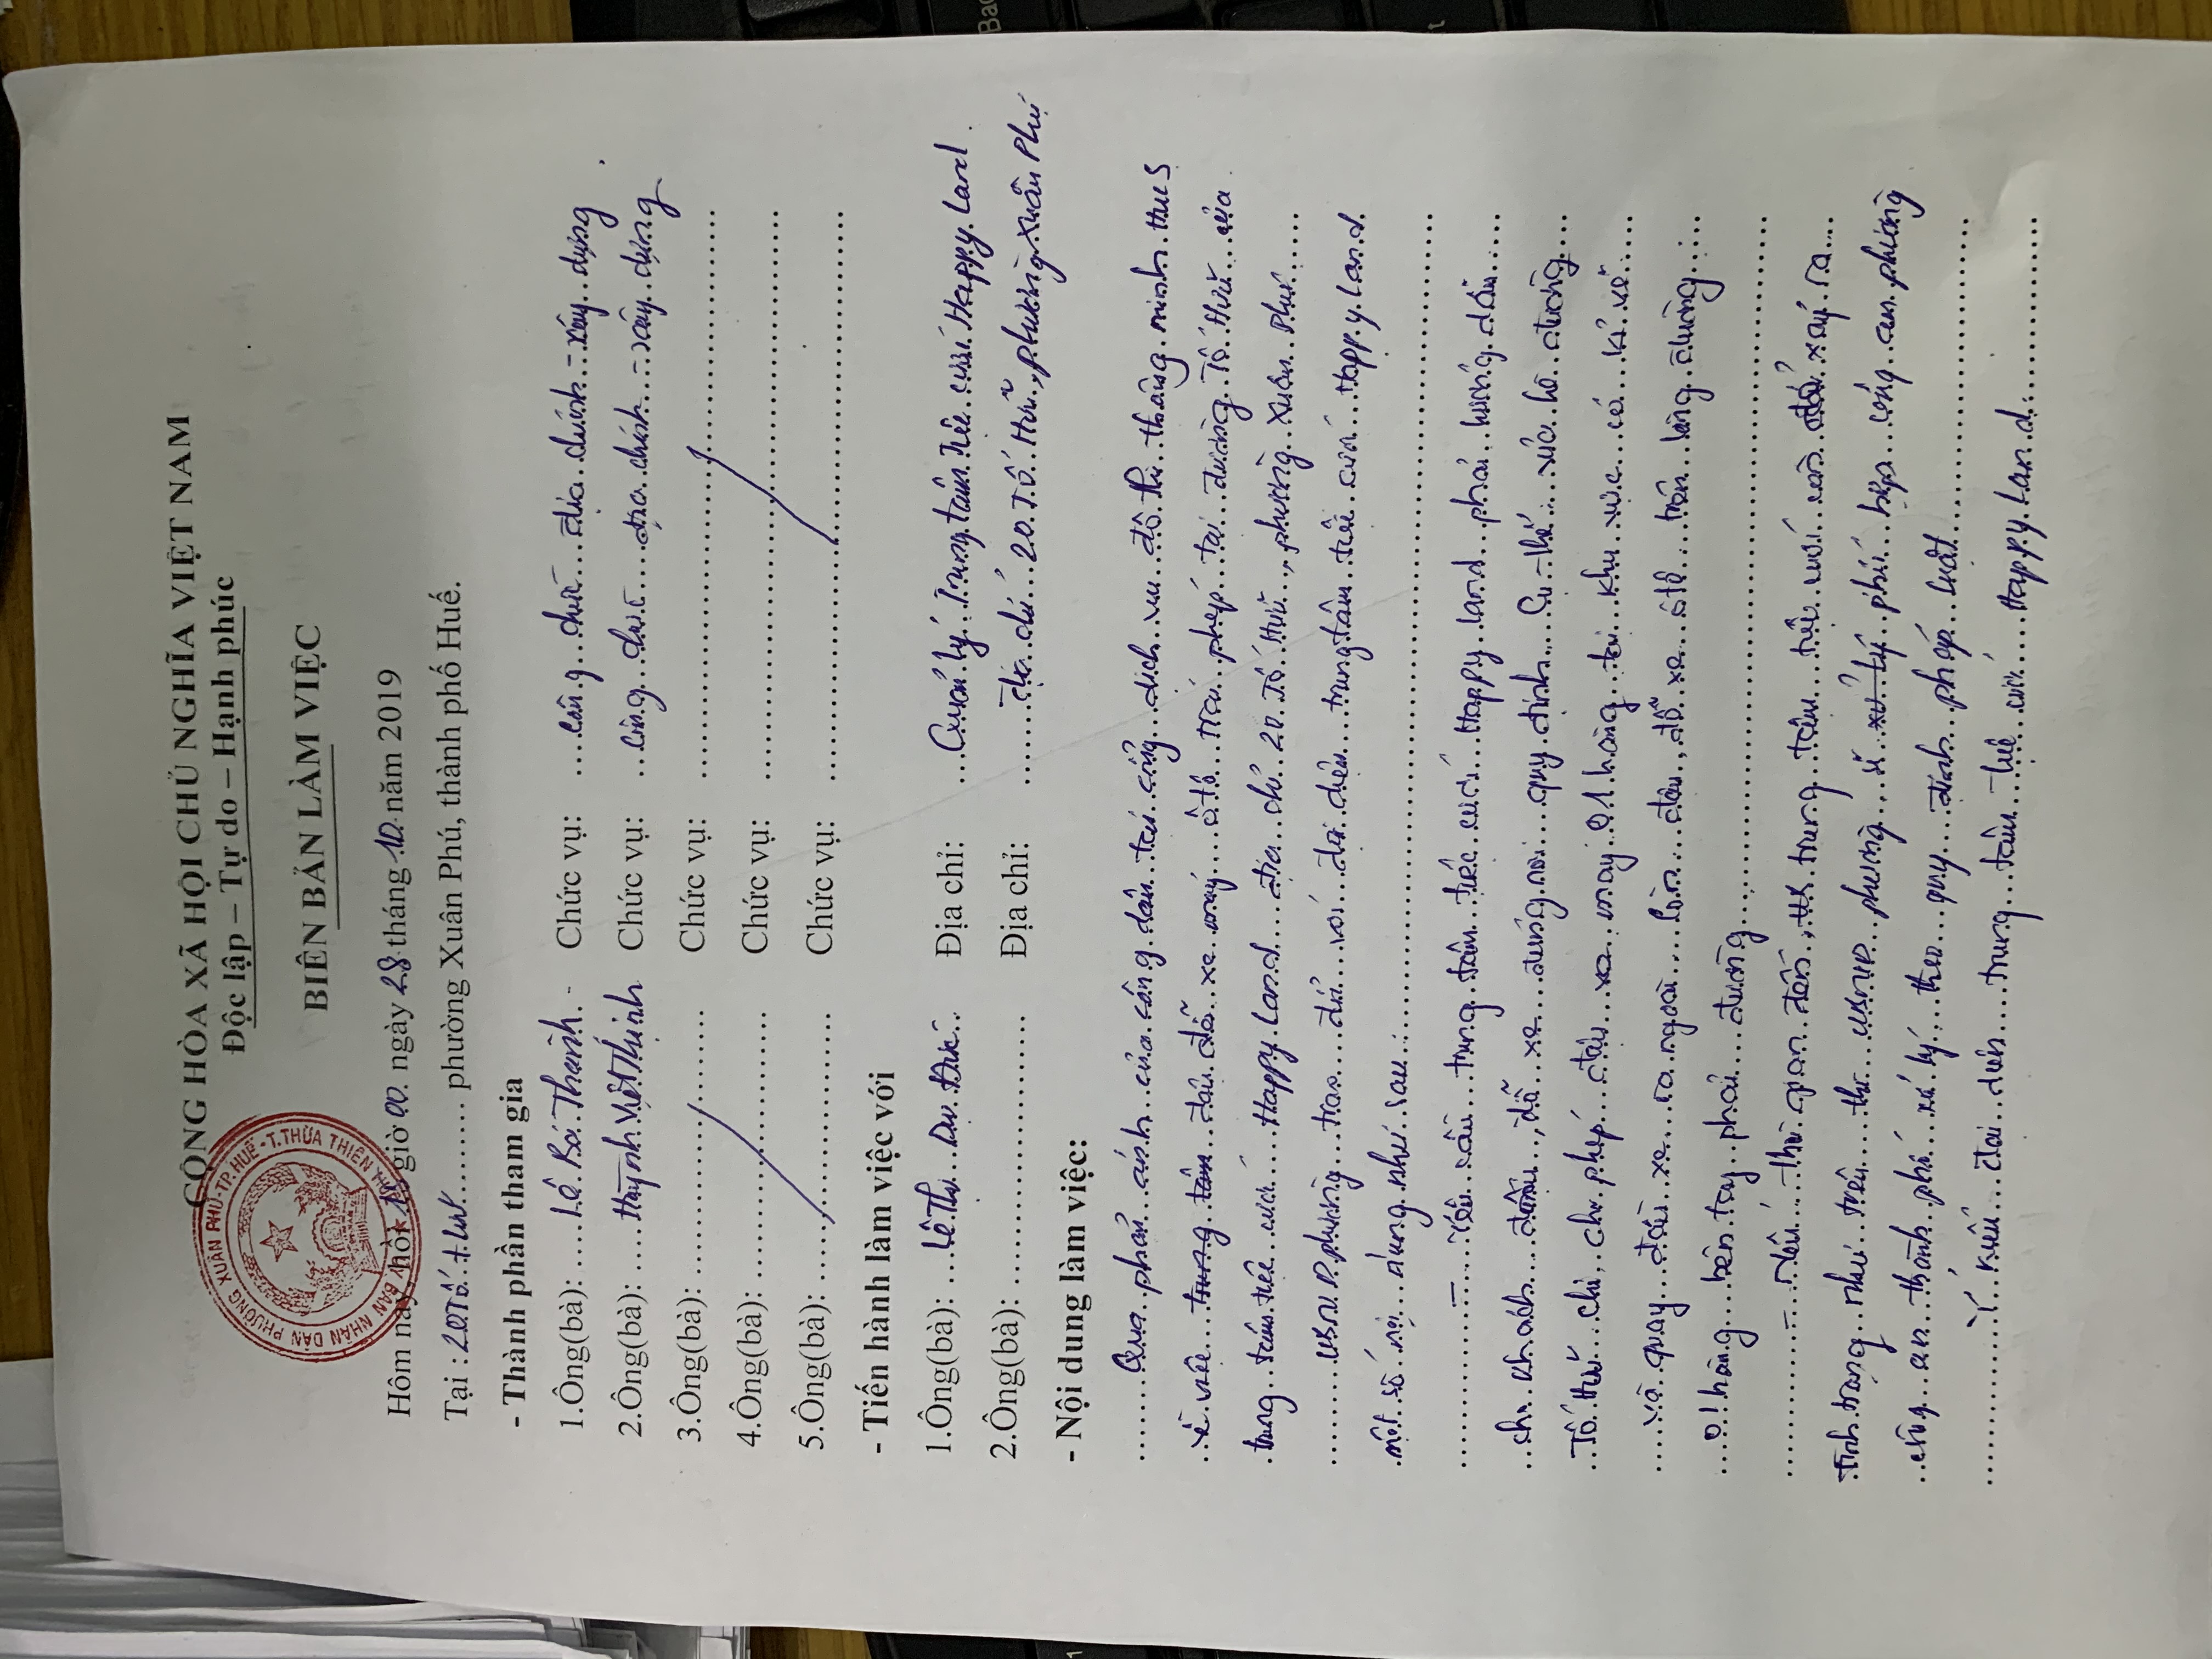 CỘNG HÒA XÃ HỘI CHỦ NGHĨA VIỆT NAM
Độc lập – Tự do – Hạnh phúc
BIÊN BẢN LÀM VIỆC
ỦY BAN NHÂN DÂN PHƯỜNG XUÂN PHÚ - TP. HUẾ - T. THỪA THIÊN HUẾ
Hôm nay, hồi giờ 00 ngày 28 tháng 10 năm 2019
Tại : 20 Tố Hữu phường Xuân Phú, thành phố Huế.
- Thành phần tham gia
1.Ông(bà): Lê Bá Thành Chức vụ: Công chức địa chính - xây dựng
2.Ông(bà): Huỳnh Việt Thịnh Chức vụ: Công chức địa chính - xây dựng
3.Ông(bà): Chức vụ:
4.Ông(bà): Chức vụ:
5.Ông(bà): Chức vụ:
- Tiến hành làm việc với
1.Ông(bà): Lê Thị Địa chỉ: Quản lý Trung tâm tiệc cưới Happy Land
2.Ông(bà): Địa chỉ: địa chỉ 20 Tố Hữu, phường Xuân Phú
- Nội dung làm việc:
Qua phản ánh của công dân tại cổng dịch vụ đô thị thông minh Hue S
về việc đậu đỗ xe máy ô tô trái phép tại đường Tố Hữu của
trung tâm tiệc cưới Happy Land địa chỉ 20 Tố Hữu, phường Xuân Phú
UBND phường trao đổi với đại diện trung tâm tiệc cưới Happy Land
một số nội dung như sau:
- Yêu cầu trung tâm tiệc cưới Happy Land phải hướng dẫn
cho khách đậu, đỗ xe đúng nơi quy định. Cụ thể vỉa hè đường
Tố Hữu chỉ cho phép đậu xe máy 01 hàng tại khu vực có kẻ vẽ
và quay đầu xe ra ngoài. Cấm đậu, đỗ xe ô tô trên lòng đường
01 hàng bên tay phải đường
- Nếu thời gian đến, trung tâm tiệc cưới còn để xảy ra
tình trạng như trên thì UBND phường sẽ phối hợp công an phường
công an thành phố xử lý theo quy định pháp luật
Ý kiến đại diện trung tâm tiệc cưới Happy Land.
Bac